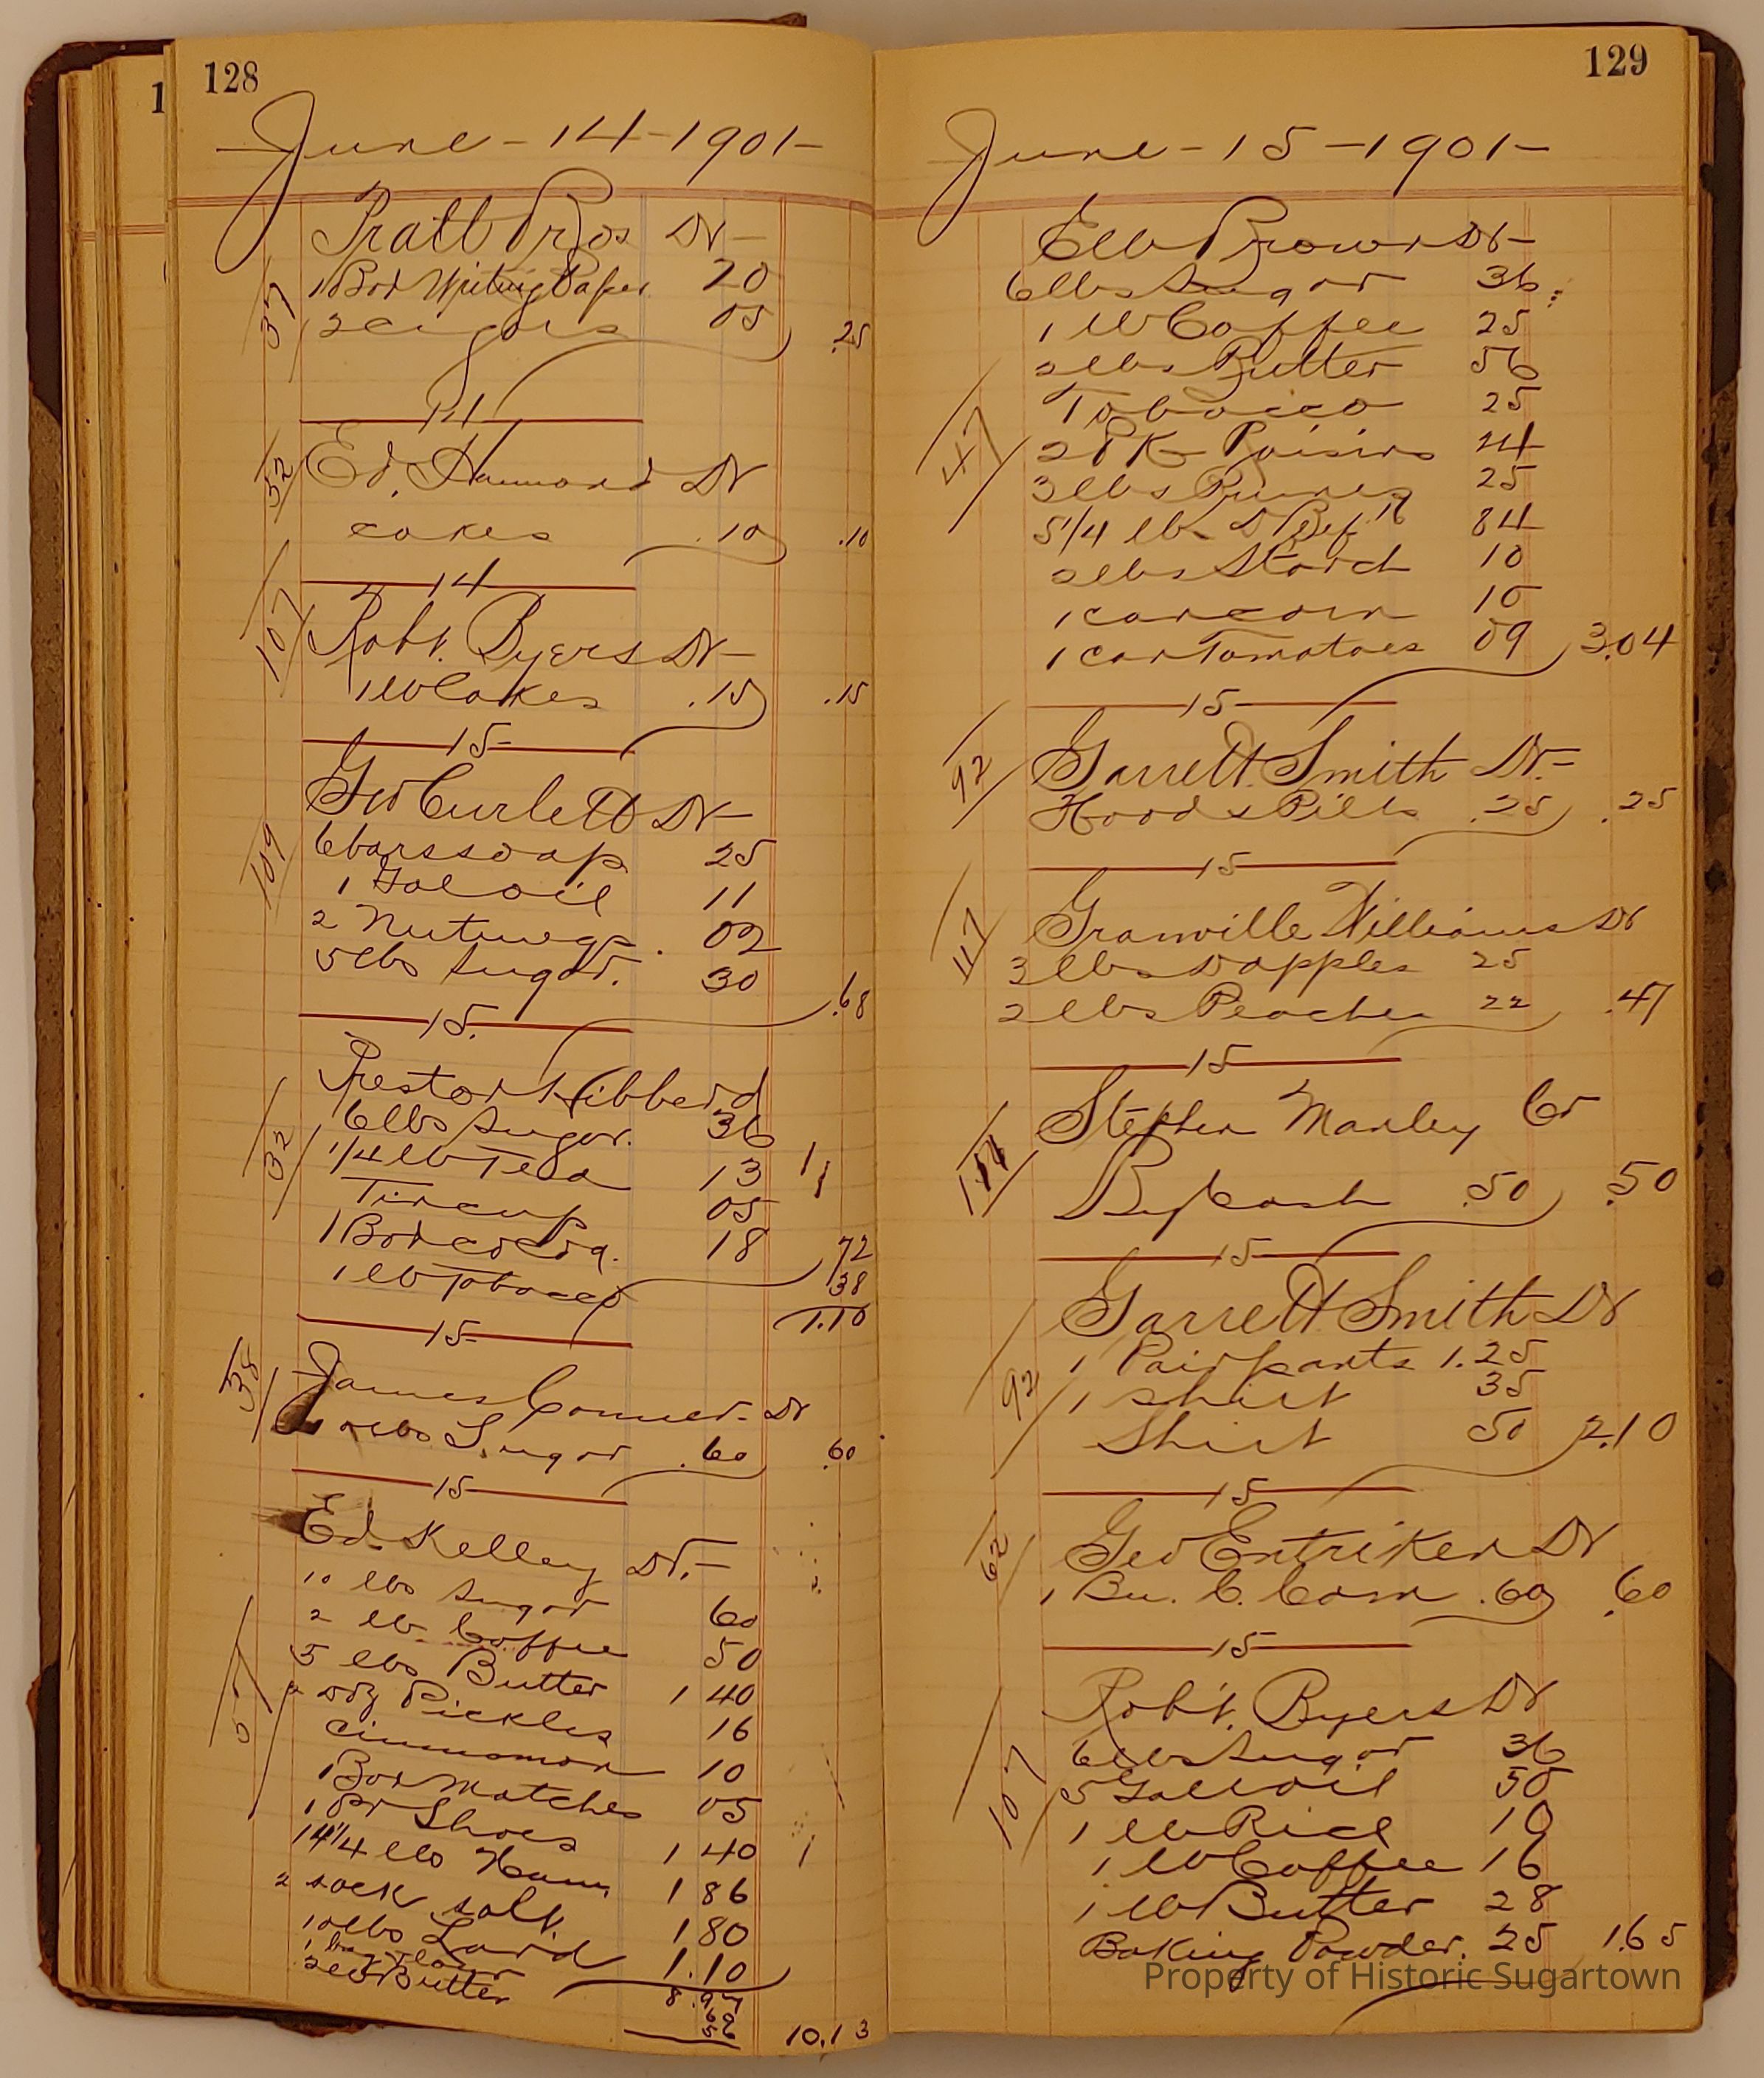 128
June-14-1901-
37
Pratt Bros Dr-
1 Box Writing Paper 20
2 cigars 05 .25
14
52
Ed. Hammond Dr
cakes .10 .10
14
107
Robt. Byers Dr-
1 lb Cakes .15 .15
15-
109
Geo Curlett Dr-
6 bars soap 25
1 Gal oil 11
2 Nutmegs. 02
5 lbs sugar. 30 .68
15.
32
Preston Hibberd
6 lbs sugar. 36
1/4 lb Tea 13
Tin cup 05
1 Box cocoa. 18 72
1 lb Tobacco 38
1.10
15-
38
James Conner- Dr
lbs Sugar .60 .60
15
57
Ed. Kelley Dr.-
10 lbs sugar 60
2 lb. Coffee 50
5 lbs Butter 1 40
2 doz Pickles 16
cinnamon 10
1 Box matches 05
1 Pr Shoes 1 40
14 1/4 lbs Ham 1 86
2 sack salt. 1 80
10 lbs Lard 1.10
1 bag flour 8.97
2 lbs Butter 60
56 10.13
129
June-15-1901-
47
Ellb Brown Dr-
6 lbs sugar 36
1 lb Coffee 25
2 lbs Butter 56
Tobacco 25
2 PK Raisins 24
3 lbs Prunes 25
5 1/4 lbs D Beef 16 84
2 lbs Starch 10
1 can corn 10
1 can Tomatoes 09 3.04
15-
92
Garrett Smith Dr.-
Hoods Pills .25 .25
15
117
Granville Williams Dr
3 lbs D apples 25
2 lbs Peaches 22 .47
15
Stephen Manley Cr
By Cash .50 .50
15
92
Garrett Smith Dr
1 Pair pants 1.25
1 shirt 35
Shirt 50 2.10
15
62
Geo Entriken Dr
1 Bu. C. Corn .60 .60
15
107
Rob't. Byers Dr
6 lbs sugar 36
5 Gall oil 50
1 lb Rice 10
1 lb Coffee 16
1 lb Butter 28
Baking Powder. 25 1.65
Property of Historic Sugartown